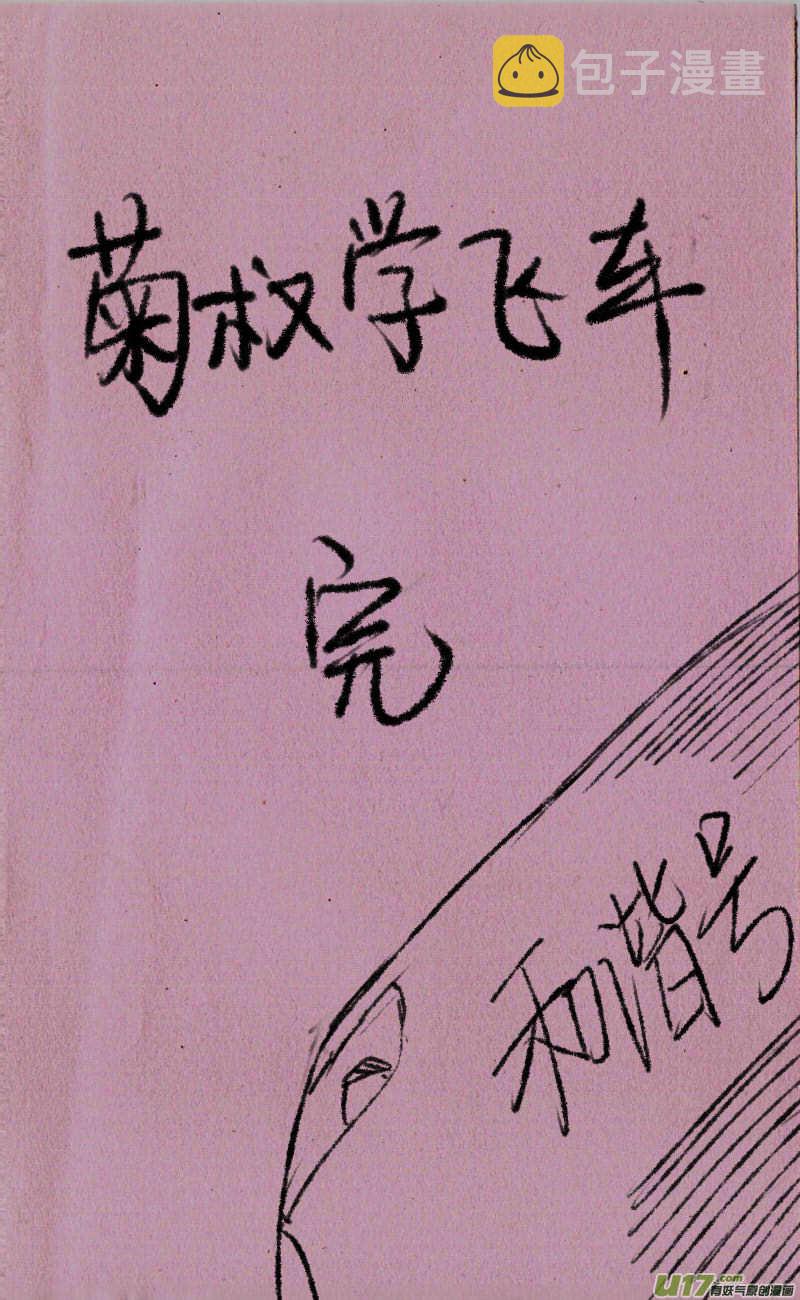 包子漫畫
菊叔学飞车
完
和谐号
U17.com
有妖气原创漫画